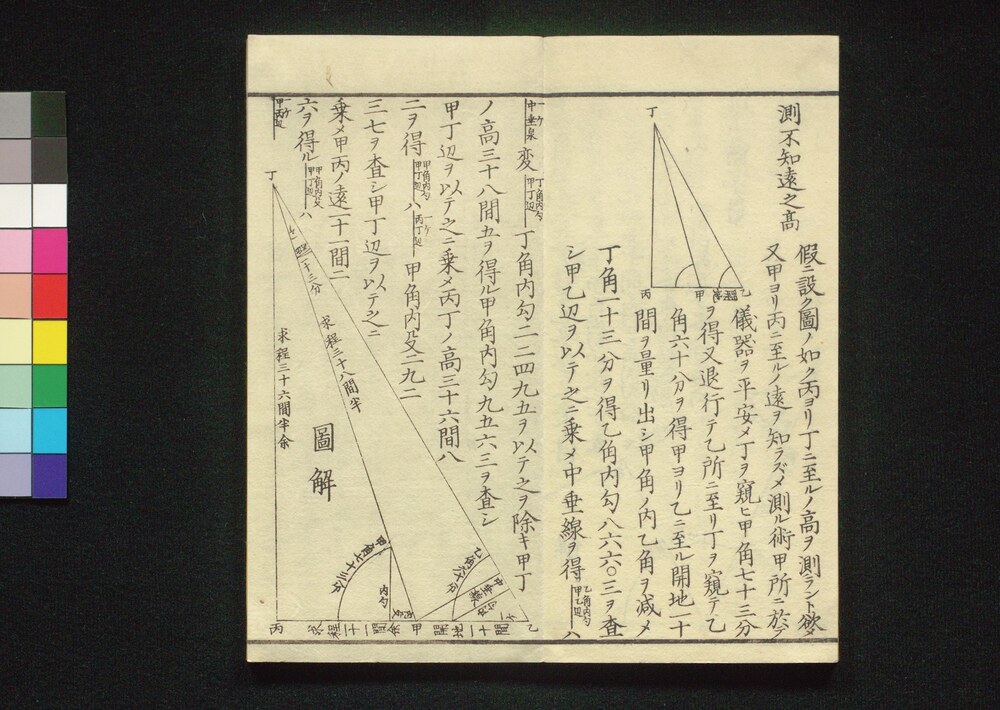 測不知遠之高
假ニ設ク圖ノ如ク丙ヨリ丁ニ至ルノ高ヲ測ラント欲
又甲ヨリ丙ニ至ルノ遠ヲ知ラズメ測ル術甲所ニ於テ
儀器ヲ平安メ丁ヲ窺ヒ甲角七十三分
ヲ得又退行テ乙所ニ至リ丁ヲ窺テ乙
角六十分ヲ得甲ヨリ乙ニ至ル開地二十
間ヲ量リ出シ甲角ノ内乙角ヲ减メ
丁角一十三分ヲ得乙角内勾八六六〇三ヲ査
シ甲乙辺ヲ以テ之ニ乗メ中垂線ヲ得
乙角内勾
甲乙辺
ハ
丁
丙
甲
乙
一ケ
中垂泉
変
丁角内勾
甲丁辺
丁角内勾二二四九五ヲ以テ之ヲ除キ甲丁
ノ高三十八間五ヲ得ル甲角内勾九五六三ヲ査シ
甲丁辺ヲ以テ之ニ乗メ丙丁ノ高三十六間八
二ヲ得
甲角内勾
甲丁辺
ハ
一ケ
丙丁辺
甲角内殳二九二
三七ヲ査シ甲丁辺ヲ以テ之ニ
乗メ甲丙ノ遠一十一間二
六ヲ得ル
甲角内殳
甲丁辺
ハ
一ケ
甲丙辺
丁
一十三分
求程三十八間半
求程三十六間半余
圖解
甲角七十三分
内勾
乙角六十分
中垂線
丙
求程一十一間余
甲
開地二十間
乙